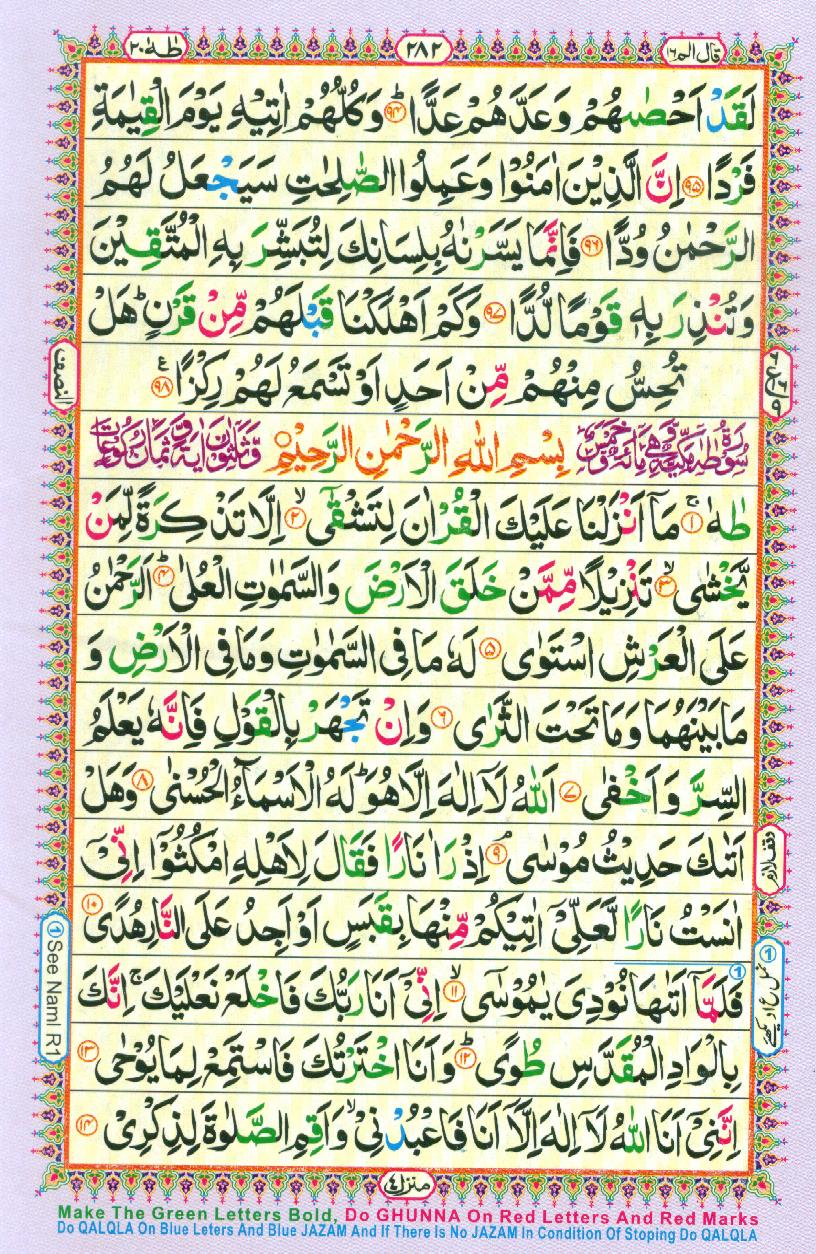 قال الم ١٦
٢٨٢
طٰهٰ ٢٠
لَقَدْ اَحْصٰىهُمْ وَعَدَّهُمْ عَدًّا ؕ﴿۹۴﴾ وَكُلُّهُمْ اٰتِيْهِ يَوْمَ الْقِيٰمَةِ
فَرْدًا ﴿۹۵﴾ اِنَّ الَّذِيْنَ اٰمَنُوْا وَعَمِلُوا الصّٰلِحٰتِ سَيَجْعَلُ لَهُمُ
الرَّحْمٰنُ وُدًّا ﴿۹۶﴾ فَاِنَّمَا يَسَّرْنٰهُ بِلِسَانِكَ لِتُبَشِّرَ بِهِ الْمُتَّقِيْنَ
وَتُنْذِرَ بِهٖ قَوْمًا لُّدًّا ﴿۹۷﴾ وَكَمْ اَهْلَكْنَا قَبْلَهُمْ مِّنْ قَرْنٍ ؕ هَلْ
تُحِسُّ مِنْهُمْ مِّنْ اَحَدٍ اَوْ تَسْمَعُ لَهُمْ رِكْزًا ﴿۹۸﴾
النصف
سُوْرَةُ طٰهٰ مَكِّيَّةٌ وَّهِيَ مِائَةٌ وَّخَمْسٌ بِسْمِ اللّٰهِ الرَّحْمٰنِ الرَّحِيْمِ وَّثَلٰثُوْنَ اٰيَةً وَّثَمَانُ رُكُوْعَاتٍ
طٰهٰ ۚ﴿۱﴾ مَاۤ اَنْزَلْنَا عَلَيْكَ الْقُرْاٰنَ لِتَشْقٰٓى ۙ﴿۲﴾ اِلَّا تَذْكِرَةً لِّمَنْ
يَّخْشٰى ۙ﴿۳﴾ تَنْزِيْلًا مِّمَّنْ خَلَقَ الْاَرْضَ وَالسَّمٰوٰتِ الْعُلٰى ؕ﴿۴﴾ اَلرَّحْمٰنُ
عَلَى الْعَرْشِ اسْتَوٰى ﴿۵﴾ لَهٗ مَا فِى السَّمٰوٰتِ وَمَا فِى الْاَرْضِ وَ
مَا بَيْنَهُمَا وَمَا تَحْتَ الثَّرٰى ﴿۶﴾ وَاِنْ تَجْهَرْ بِالْقَوْلِ فَاِنَّهٗ يَعْلَمُ
السِّرَّ وَاَخْفٰى ﴿۷﴾ اَللّٰهُ لَاۤ اِلٰهَ اِلَّا هُوَ ؕ لَهُ الْاَسْمَآءُ الْحُسْنٰى ﴿۸﴾ وَهَلْ
اَتٰىكَ حَدِيْثُ مُوْسٰى ۘ﴿۹﴾ اِذْ رَاٰ نَارًا فَقَالَ لِاَهْلِهِ امْكُثُوْۤا اِنِّىْۤ
وقف لازم
اٰنَسْتُ نَارًا لَّعَلِّىْۤ اٰتِيْكُمْ مِّنْهَا بِقَبَسٍ اَوْ اَجِدُ عَلَى النَّارِ هُدًى ﴿۱۰﴾
فَلَمَّاۤ اَتٰىهَا نُوْدِىَ يٰمُوْسٰى ۙ﴿۱۱﴾ اِنِّىْۤ اَنَا رَبُّكَ فَاخْلَعْ نَعْلَيْكَ ۚ اِنَّكَ
1 See Naml R1
بِالْوَادِ الْمُقَدَّسِ طُوًى ؕ﴿۱۲﴾ وَاَنَا اخْتَرْتُكَ فَاسْتَمِعْ لِمَا يُوْحٰى ﴿۱۳﴾
اِنَّنِىْۤ اَنَا اللّٰهُ لَاۤ اِلٰهَ اِلَّاۤ اَنَا فَاعْبُدْنِىْ ۙ وَاَقِمِ الصَّلٰوةَ لِذِكْرِىْ ﴿۱۴﴾
منزل ٤
Make The Green Letters Bold, Do GHUNNA On Red Letters And Red Marks
Do QALQLA On Blue Leters And Blue JAZAM And If There Is No JAZAM In Condition Of Stoping Do QALQLA